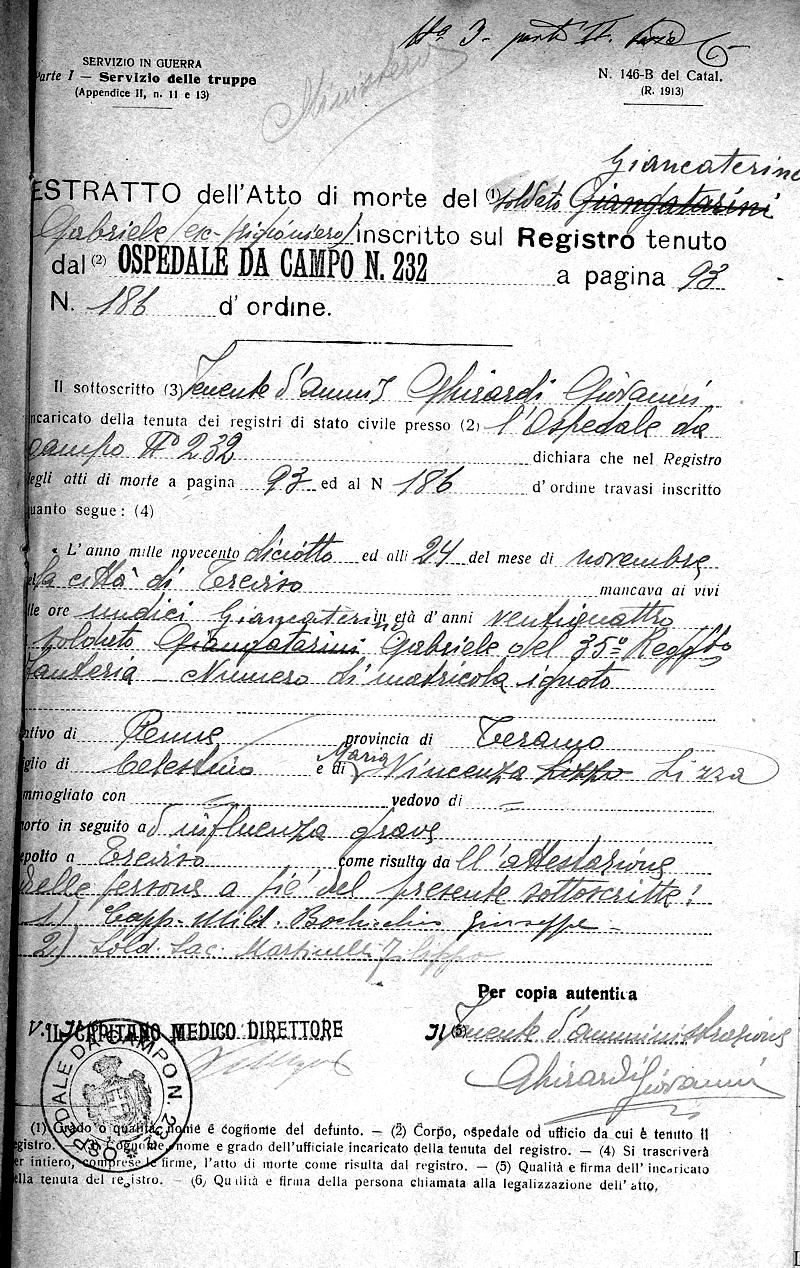 N° 3 - parte II. serie
SERVIZIO IN GUERRA
Parte I — Servizio delle truppe
(Appendice II, n. 11 e 13)
N. 146-B del Catal.
(R. 1913)
Ministero
Giancaterino
ESTRATTO dell'Atto di morte del (1) soldato Giangatarini
Gabriele (ex-prigioniero) inscritto sul Registro tenuto
dal (2) OSPEDALE DA CAMPO N. 232 a pagina 93
N. 186 d'ordine.
Il sottoscritto (3) Tenente d'amm. Ghirardi Giovanni
incaricato della tenuta dei registri di stato civile presso (2) l'Ospedale da
campo N° 232 dichiara che nel Registro
degli atti di morte a pagina 93 ed al N 186 d'ordine travasi inscritto
quanto segue: (4)
L'anno mille novecento diciotto ed alli 24 del mese di novembre
la città di Treviso mancava ai vivi
alle ore undici Giancaterino in età d'anni ventiquattro
soldato Giangatarini Gabriele del 35° Reggto
fanteria - Numero di matricola ignoto
nativo di Penne provincia di Teramo
figlio di Celestino e di Maria Vincenza Lizzo Lizza
ammogliato con = vedovo di =
morto in seguito a d'influenza grave
sepolto a Treviso come risulta da ll'attestazione
delle persone a piè del presente sottoscritte:
1) Capp. Milit. Giuseppe -
2) Sold. Sac. Martinelli Filippo
Per copia autentica
V. IL CAPITANO MEDICO DIRETTORE
Il (5) Tenente d'amministrazione
Ghirardi Giovanni
OSPEDALE DA CAMPO N. 232
(1) Grado o qualità, nome e cognome del defunto. — (2) Corpo, ospedale od ufficio da cui è tenuto il
registro. — (3) Cognome, nome e grado dell'ufficiale incaricato della tenuta del registro. — (4) Si trascriverà
per intiero, comprese le firme, l'atto di morte come risulta dal registro. — (5) Qualità e firma dell'incaricato
della tenuta del registro. — (6) Qualità e firma della persona chiamata alla legalizzazione dell'atto.